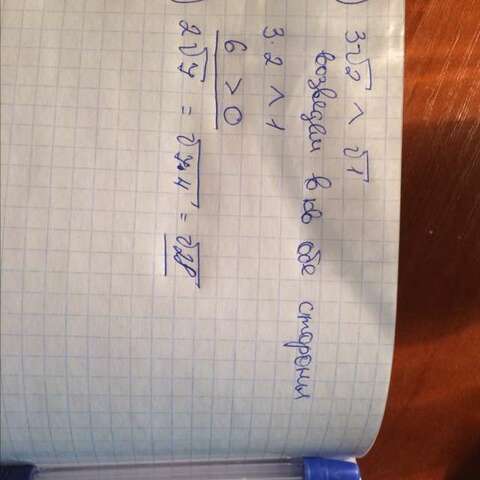 ) 3·√2 > √1
возведем в кв обе стороны
3·2 > 1
6 > 0
) 2√7 = √7·4 = √28